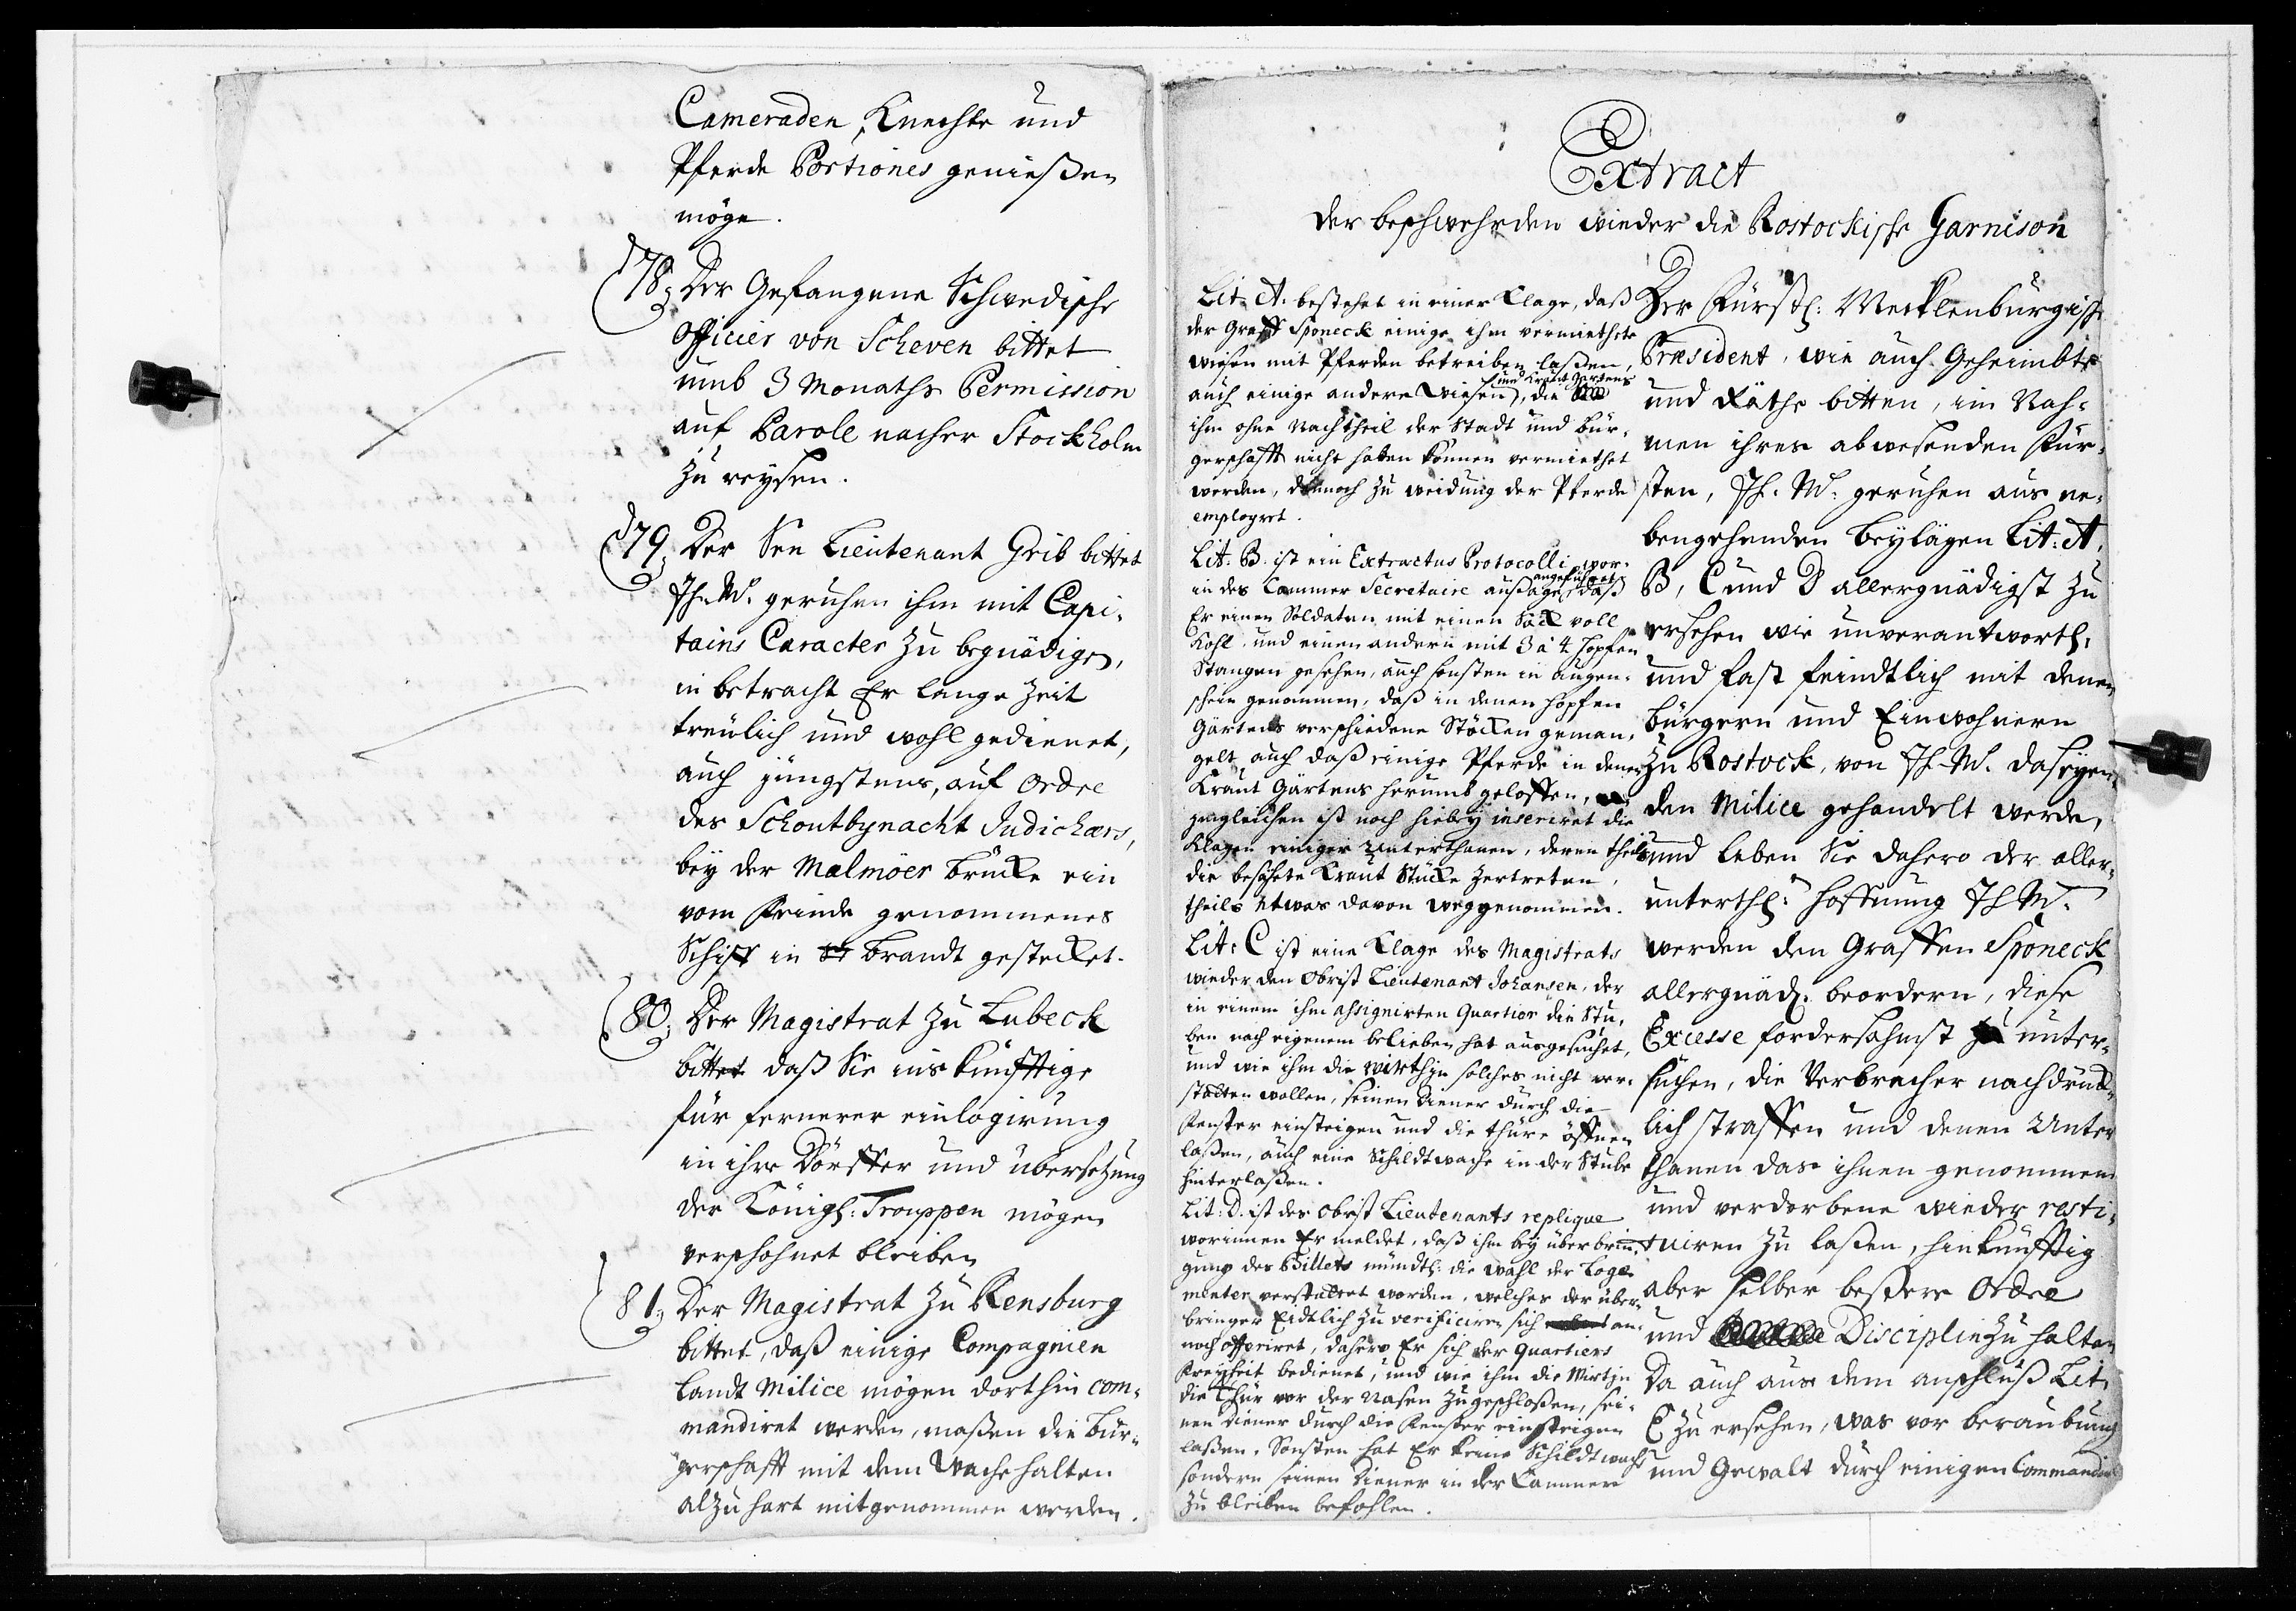 Cameraden, Knechte und
Pferde Portiones genießen
möge.
78, Der Gefangene Schwedische
Officier von Scheven bittet
umb 3 Monaths Permission
auf Parole nacher Stockholm
zu reysen.
79, Der See Lieutenant Grib bittet
Ih. M. geruhen ihm mit Capi-
tains Caracter zu begnädigen,
in betracht Er lange Zeit
treulich und wohl gedienet,
auch jüngstens, auf Ordre
des Schoutbynacht Judichærs,
bey der Malmöer Brücke ein
vom Feinde genommenes
Schiff in Brandt gestecket.
80, Der Magistrat zu Lubeck
bittet daß Sie ins künfftige
für fernerer einlogirung
in ihre Dörffer und übersetzung
der Königl: Trouppen mögen
verschohnet bleiben
81, Der Magistrat zu Rensburg
bittet, daß einige Compagnien
Landt Milice mögen dorthin com-
mandiret werden, maßen die Bür-
gerschafft mit dem Wache halten
alzu hart mitgenommen werden.
Extract
der beschwehrden wieder die Rostockische Garnison
Lit: A. bestehet in einer Klage, daß
der Graff Sponeck einige ihm vermiethete
wiesen mit Pferden betreiben laßen,
auch einige andere Wiesen und Kraut Gärtens, die
ihm ohne Nachtheil der Stadt und Bür-
gerschafft nicht haben können vermiethet
werden, dennoch zu weidung der Pferde
employret.
Lit: B. ist ein Extractus Protocolli, wor-
in des Cammer Secretaire außage angeführet, daß
Er einen Soldaten mit einen Sack voll
Kohl, und einen andern mit 3 à 4 Hopfen
Stangen gesehen, auch sonsten in augen-
schein genommen, daß in denen Hopfen
Gärtens verschiedene Stöcken geman-
gelt, auch daß einige Pferde in denen
Kraut Gärtens herumb geloffen,
ingleichen ist noch hiebey inseriret die
Klagen einiger Unterthanen, deren theils
die besähete Kraut Stücke zertreten,
theils etwas davon weggenommen.
Lit: C ist eine Klage des Magistrats
wieder den Obrist Lieutenant Johansen, der
in einem ihm assignirten Quartier die Stu-
ben nach eigenem belieben hat ausgesuchet,
und wie ihm die Wirthin solches nicht ver-
statten wollen, seinen Diener durch die
Fenster einsteigen und die thüre öffnen
laßen, auch eine Schildtwache in der Stube
hinterlaßen.
Lit: D. ist des Obrist Lieutenants replique
worinnen Er meldet, daß ihm bey überbrin-
gung des Billets mündtl: die wahl der Loge-
menter verstattet worden, welches der über-
bringer Eidtlich zu verificiren sich an-
noch offeriret, dahero Er sich der Quartiers
Freyheit bedienet, und wie ihm die Wirtin
die Thür vor der Nasen zugeschloßen, sei-
nen Diener durch die Fenster einsteigen
laßen. Sonsten hat Er keine Schildtwacht
sondern seinen Diener in der Cammer
zu bleiben befohlen.
Der Fürstl: Mecklenburgische
Præsident, wie auch Geheimbte
und Räthe bitten, im Nah-
men ihres abwesenden Für-
sten, Ih. M. geruhen aus ne-
bengehenden Beylagen Lit: A,
B, C und D allergnädigst zu
ersehen wie unverantwortl.
und fast feindtlich mit denen
Bürgern und Einwohnern
zu Rostock, von Ih. M. daseyen-
den Milice gehandelt werde,
und leben Sie dahero der aller-
unterthl: Hoffnung Ih M.
werden den Graffen Sponeck
allergnäd. beordern, diese
Excesse fordersahmst zu unter-
suchen, die Verbrecher nachdrück-
lich straffen und denen Unter
thanen das ihnen genommene
und verdorbene wieder resti-
tuiren zu laßen, hinkünfftig
aber selber beßere Ordre
und Disciplin zu halten
Da auch aus dem anschluß Lit.
E zu ersehen, was vor beraubung
und Gewalt durch einigen Commandir